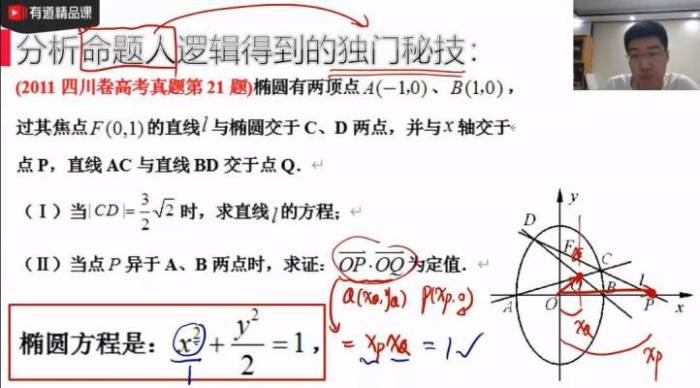 有道精品课
分析命题人逻辑得到的独门秘技:
(2011 四川卷高考真题第 21 题)椭圆有两顶点 A(−1,0)、B(1,0),
过其焦点 F(0,1) 的直线 l 与椭圆交于 C、D 两点,并与 x 轴交于
点 P,直线 AC 与直线 BD 交于点 Q.
(Ⅰ)当|CD|=3/2√2 时,求直线 l 的方程;
(Ⅱ)当点 P 异于 A、B 两点时,求证:OP·OQ 为定值.
Q(xQ,yQ) P(xP,0)
= xP xQ = 1 ✓
椭圆方程是:x²/1 + y²/2 = 1,
y
D
F
C
l
A
O
B
P
x
xQ
xP